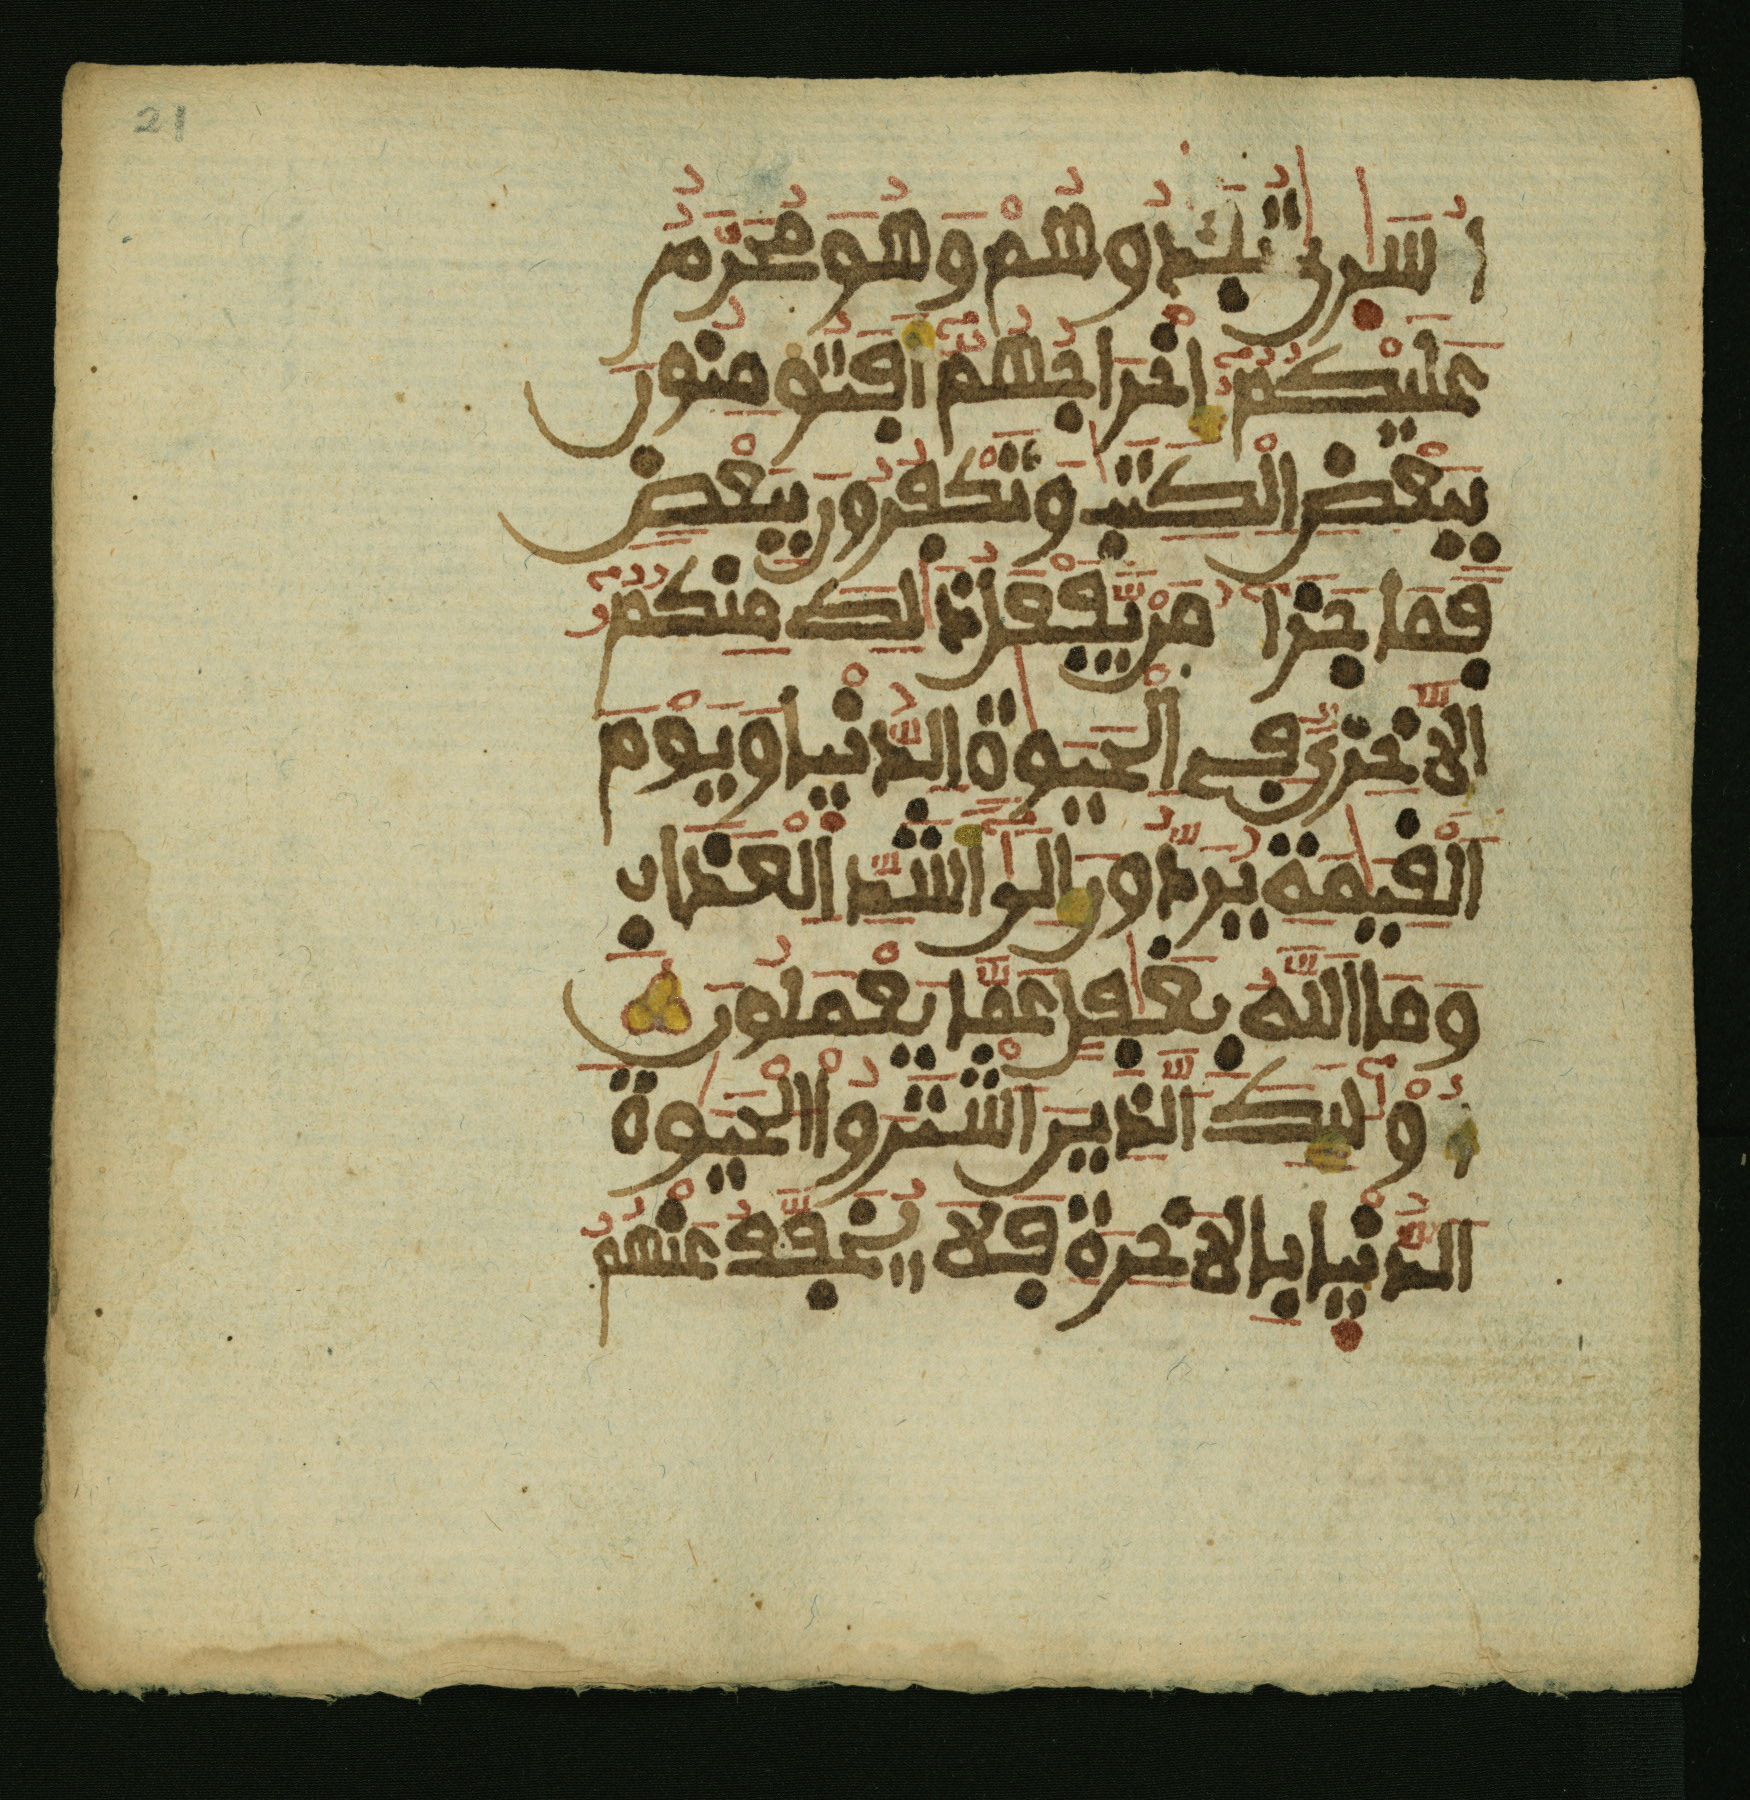 21
أُسَٰرَىٰ تُفَٰدُوهُمْ وَهُوَ مُحَرَّمٌ
عَلَيْكُمُۥٓ إِخْرَاجُهُمُۥٓ أَفَتُومِنُونَ
بِبَعْضِ الْكِتَٰبِ وَتَكْفُرُونَ بِبَعْضٍ
فَمَا جَزَآءُ مَنْ يَّفْعَلُ ذَٰلِكَ مِنكُمُۥٓ
إِلَّا خِزْيٌ فِي الْحَيَوٰةِ الدُّنْيَا وَيَوْمَ
الْقِيَٰمَةِ يُرَدُّونَ إِلَىٰٓ أَشَدِّ الْعَذَابِ
وَمَا اللَّهُ بِغَٰفِلٍ عَمَّا يَعْمَلُونَ
أُوْلَٰٓئِكَ الَّذِينَ اشْتَرَوُا الْحَيَوٰةَ
الدُّنْيَا بِالَاخِرَةِ فَلَا يُخَفَّفُ عَنْهُمُ